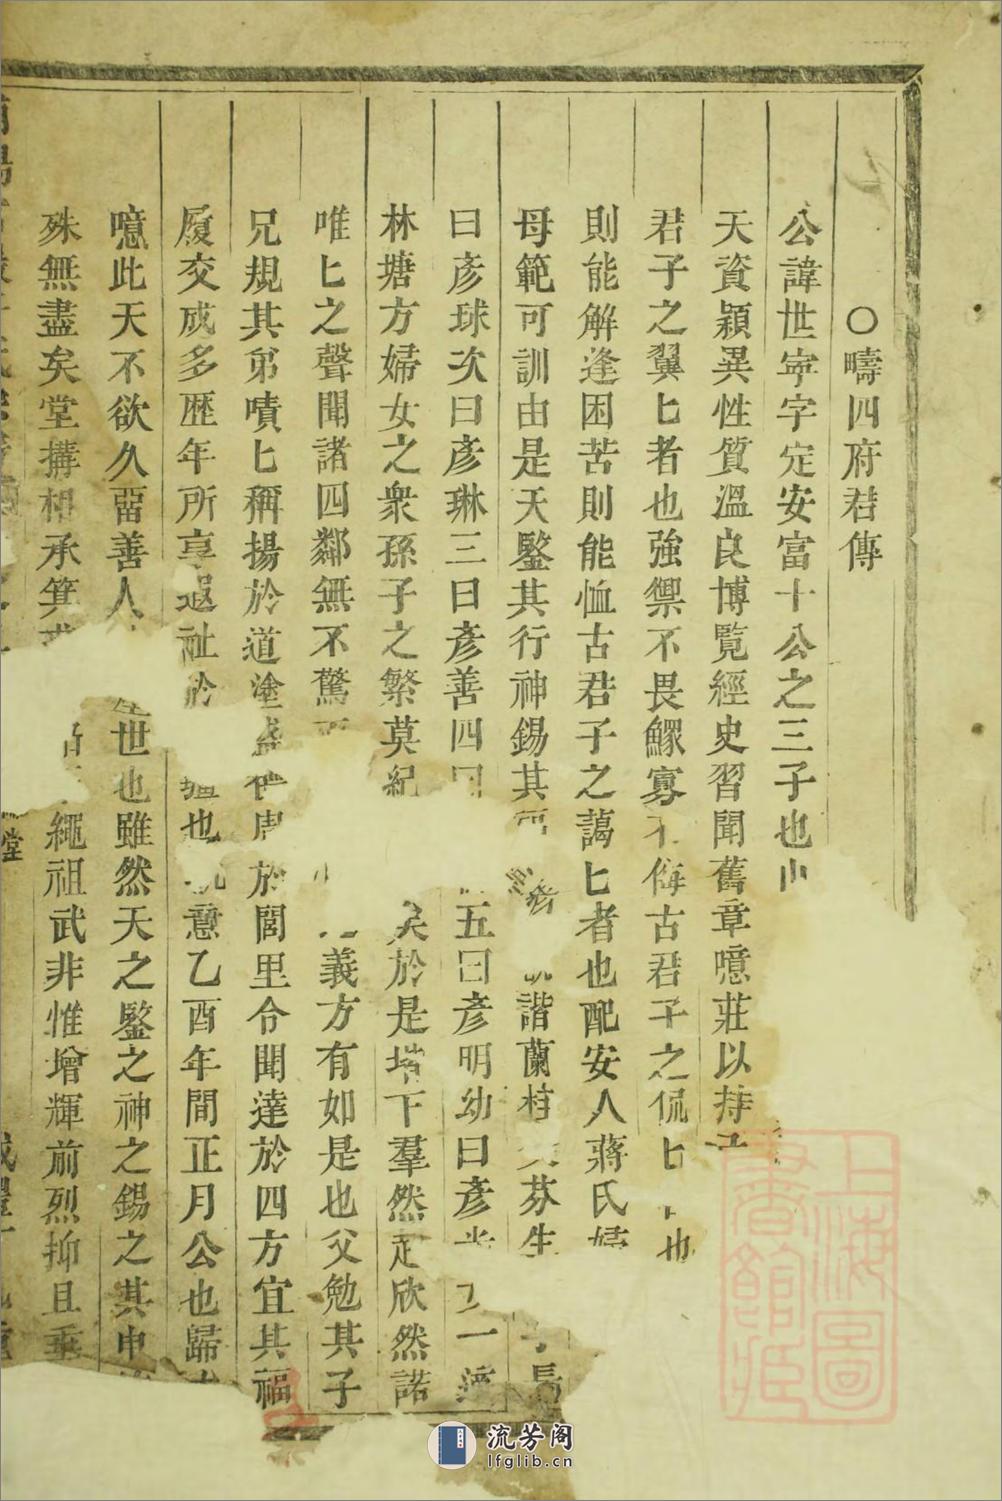 ○疇四府君傳
公諱世寕字定安富十公之三子也
天資穎異性質溫良博覧經史習聞舊章噫莊以持
君子之翼匕者也強禦不畏鰥寡不侮古君子之侃匕 也
則能解逢困苦則能恤古君子之藹匕者也配安人蔣氏
母範可訓由是天鑒其行神錫其 諧蘭桂 芬生 長
曰彥球次曰彥琳三曰彥善四曰 五曰彥明幼曰彥 一
林塘方婦女之衆孫子之繁莫紀 矣於是堦下羣然走欣然諾
唯匕之聲聞諸四鄰無不驚 義方有如是也父勉其子
兄規其弟嘖匕稱揚於道塗 於閭里令聞達於四方宜其福
履交成多歷年所享遐祉於 疆也 意乙酉年間正月公也歸
噫此天不欲久畱善人 世也雖然天之鑒之神之錫之其申
殊無盡矣堂搆相承箕 繩祖武非惟增輝前烈抑且垂
堂
上海圖書館藏
流芳阁
lfglib.cn